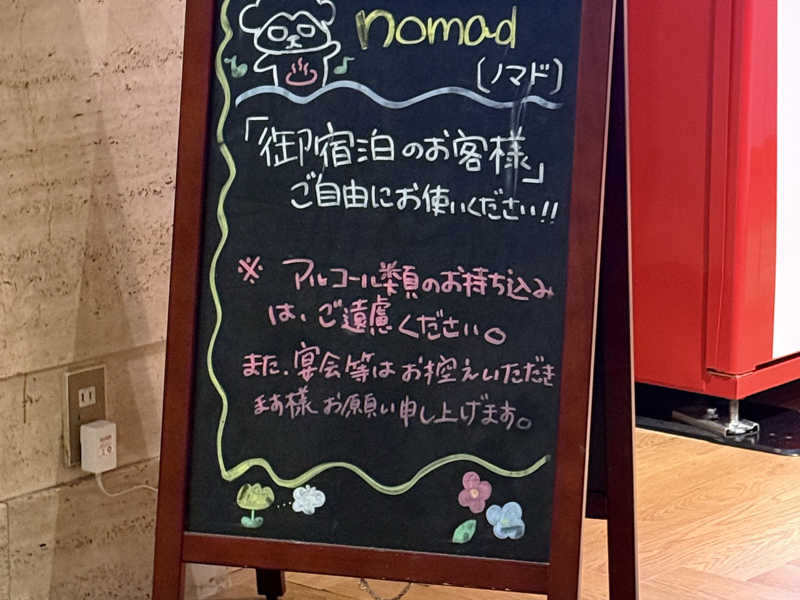 nomad
(ノマド)
「御宿泊のお客様」
ご自由にお使いください!!
※ アルコール類のお持ち込み
は、ご遠慮ください。
また、宴会等はお控えいただき
ます様お願い申し上げます。